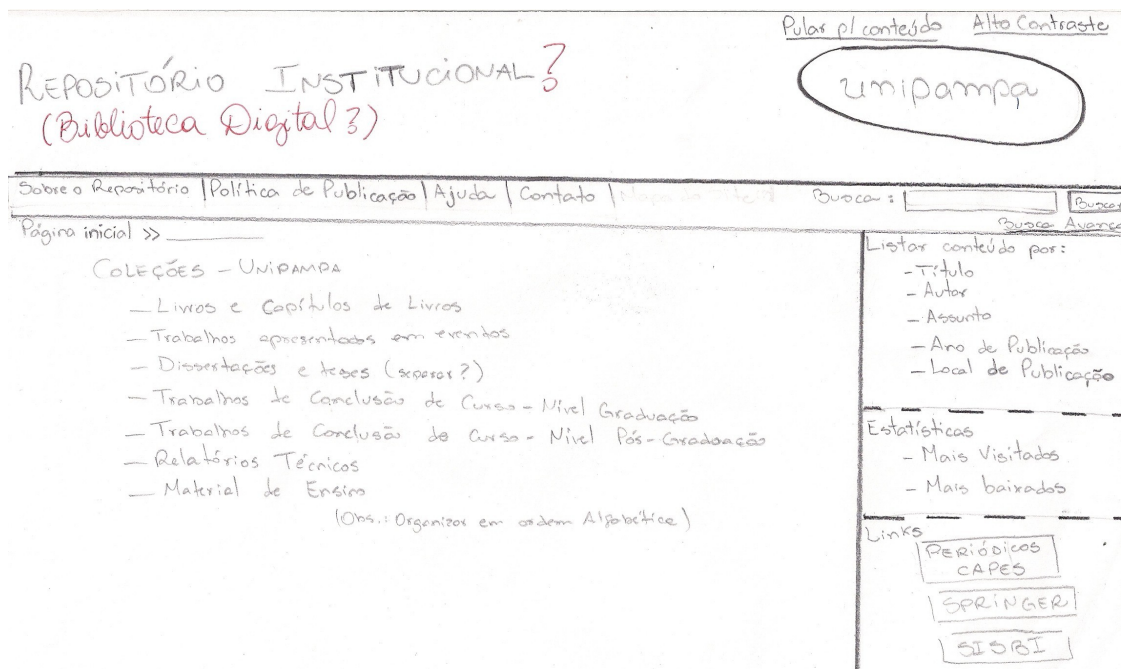 Pular p/ conteúdo Alto Contraste
REPOSITÓRIO INSTITUCIONAL?
(Biblioteca Digital?)
unipampa
Sobre o Repositório | Política de Publicação | Ajuda | Contato |
Busca: Buscar
Busca Avança
Página inicial >>
COLEÇÕES - UNIPAMPA
- Livros e Capítulos de Livros
- Trabalhos apresentados em eventos
- Dissertações e teses (separar?)
- Trabalhos de Conclusão de Curso - Nível Graduação
- Trabalhos de Conclusão de Curso - Nível Pós-Graduação
- Relatórios Técnicos
- Material de Ensino
(Obs.: Organizar em ordem Alfabética)
Listar conteúdo por:
- Título
- Autor
- Assunto
- Ano de Publicação
- Local de Publicação
Estatísticas
- Mais Visitados
- Mais baixados
Links
PERIÓDICOS
CAPES
SPRINGER
SISBI